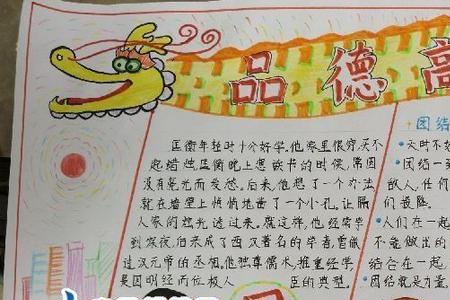 品德高
匡衡年轻时十分好学。他家里很穷,买不
起蜡烛,匡衡晚上想读书的时候,常因
没有亮光而发愁。后来,他想了一个办法
就在墙壁上悄悄地凿了一个小孔,让隔
人家的烛光透过来。就这样,他经常学
到深夜,后来成了西汉著名的学者,曾做
过汉元帝的丞相。他独尊儒术,推重经学,
是因明经而位极人臣的典型。
团结
天时不如
团结一
敌人,任何
们丧胆
人们在一起
不能做出的
结合在一起,
团结就是力量,